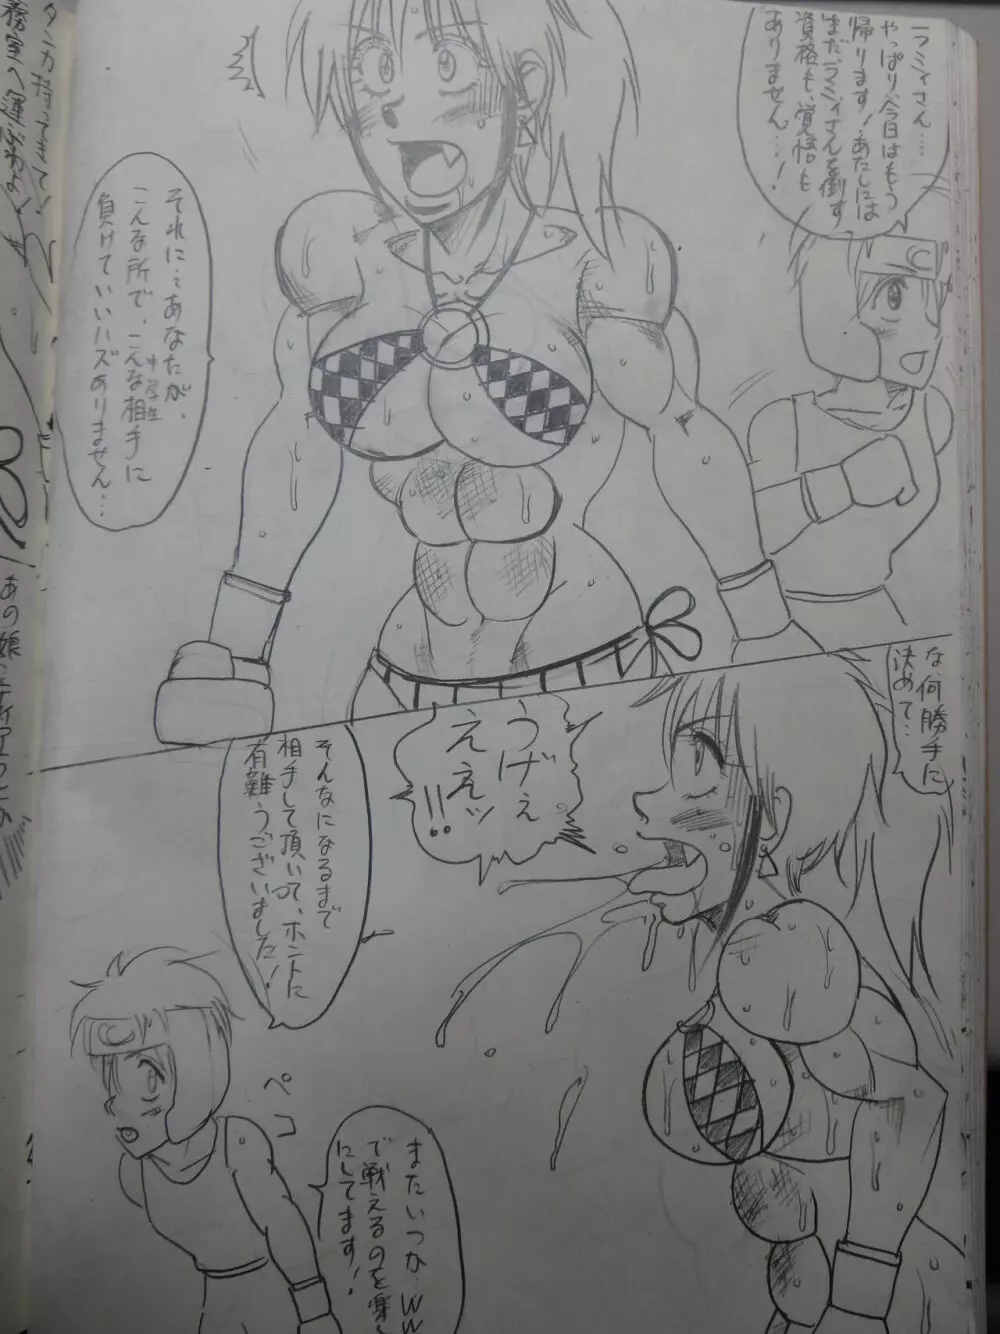 ラミィさん…
やっぱり今日はもう
帰ります!あたしには
まだラミィさんを倒す
資格も、覚悟も
ありません…!
それに…あなたが、
こんな所で、こんな相手に
中学生
負けていいハズありません…
な、何勝手に
決めて…
うげぇ
ええッ
!!
そんなになるまで
相手して頂いて、ホントに
有難うございました!
ペコ
またいつか…WW
で戦えるのを楽し
にしてます!
タンカ持ってきて!
務室へ運ぶわよ!
あの娘…